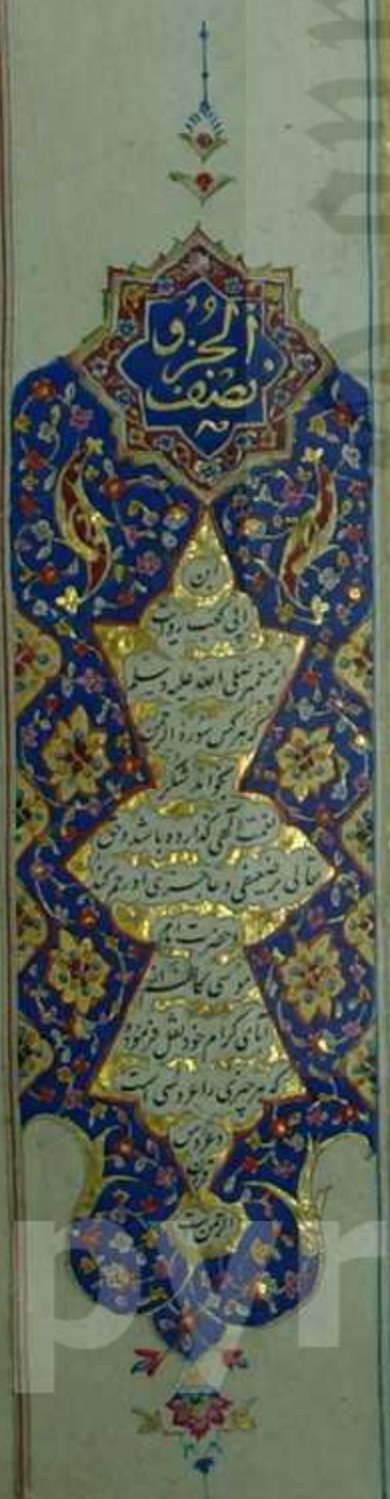 نصف
الحزب
ابن
ابی کعب روایت
از پیغمبر صلی الله علیه و سلم
که هر کس سوره الرحمن
بخواند شکر
نعمت الهی گذارده باشد و حق
تعالی بر ضعیفی و عاجزی او رحم کند
و حضرت امام
موسی کاظم از
آبای کرام خود نقل فرموده
که هر چیزی را عروسی است
و عروس
قرآن
الرحمن است
pyr